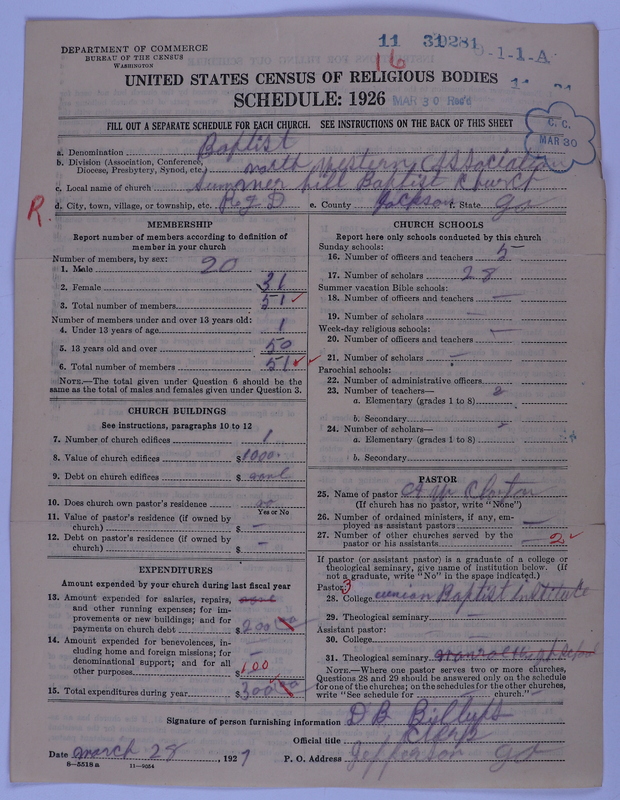 DEPARTMENT OF COMMERCE
BUREAU OF THE CENSUS
WASHINGTON
11 31 0281 9-1-1-A
16
UNITED STATES CENSUS OF RELIGIOUS BODIES
SCHEDULE: 1926
MAR 30 Rec'd
C. C.
MAR 30
FILL OUT A SEPARATE SCHEDULE FOR EACH CHURCH. SEE INSTRUCTIONS ON THE BACK OF THIS SHEET
a. Denomination Baptist
b. Division (Association, Conference, Diocese, Presbytery, Synod, etc.) North Western Association
c. Local name of church Summer hill Baptist Church
d. City, town, village, or township, etc. R.F.D e. County Jackson f. State Ga
R
MEMBERSHIP
Report number of members according to definition of
member in your church
Number of members, by sex:
1. Male 20
2. Female 31
3. Total number of members 51
Number of members under and over 13 years old:
4. Under 13 years of age 1
5. 13 years old and over 50
6. Total number of members 51
NOTE.—The total given under Question 6 should be
same as the total of males and females given under Question 3.
CHURCH BUILDINGS
See instructions, paragraphs 10 to 12
7. Number of church edifices 1
8. Value of church edifices $ 1000.
9. Debt on church edifices $ none
10. Does church own pastor's residence no
Yes or No
11. Value of pastor's residence (if owned by
church) $ —
12. Debt on pastor's residence (if owned by
church) $ —
EXPENDITURES
Amount expended by your church during last fiscal year
13. Amount expended for salaries, repairs,
and other running expenses; for im-
provements or new buildings; and for
payments on church debt $ 200 00
14. Amount expended for benevolences, in-
cluding home and foreign missions; for
denominational support; and for all
other purposes $ 100
15. Total expenditures during year $ 300 00
CHURCH SCHOOLS
Report here only schools conducted by this church
Sunday schools:
16. Number of officers and teachers 5
17. Number of scholars 28
Summer vacation Bible schools:
18. Number of officers and teachers —
19. Number of scholars —
Week-day religious schools: —
20. Number of officers and teachers
21. Number of scholars —
Parochial schools:
22. Number of administrative officers
23. Number of teachers—
a. Elementary (grades 1 to 8)
b. Secondary
24. Number of scholars—
a. Elementary (grades 1 to 8)
b. Secondary
PASTOR
25. Name of pastor
(If church has no pastor, write "None")
26. Number of ordained ministers, if any, em-
ployed as assistant pastors —
27. Number of other churches served by the
pastor or his assistants 2
If pastor (or assistant pastor) is a graduate of a college or
theological seminary, give name of institution below. (If
not a graduate, write "No" in the space indicated.)
Pastor: 3
28. College Baptist Institute
29. Theological seminary —
Assistant pastor:
30. College —
31. Theological seminary
NOTE.—Where one pastor serves two or more churches,
Questions 28 and 29 should be answered only on the schedule
for one of the churches; on the schedules for the other churches,
write "See schedule for church."
Signature of person furnishing information D B Billups
Official title Clerk
Date March 28, 1927 P. O. Address Jefferson Ga
8—5518 a 11—9054